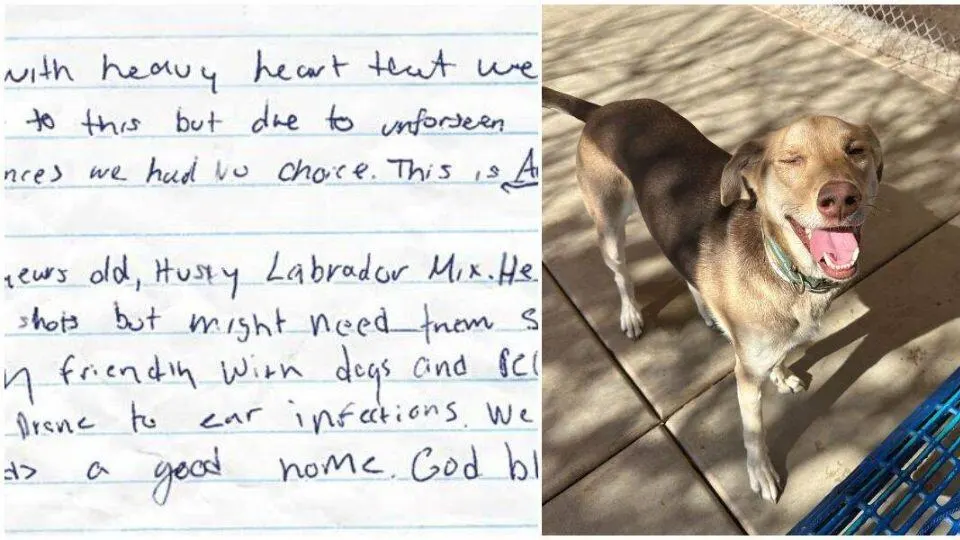 with heavy heart that we
to this but due to unforseen
nces we had No choice. This is A
years old, Husky Labrador Mix. He
shots but might need them s
y friendly with dogs and
Prone to ear infections. We
ds a good home. God bl